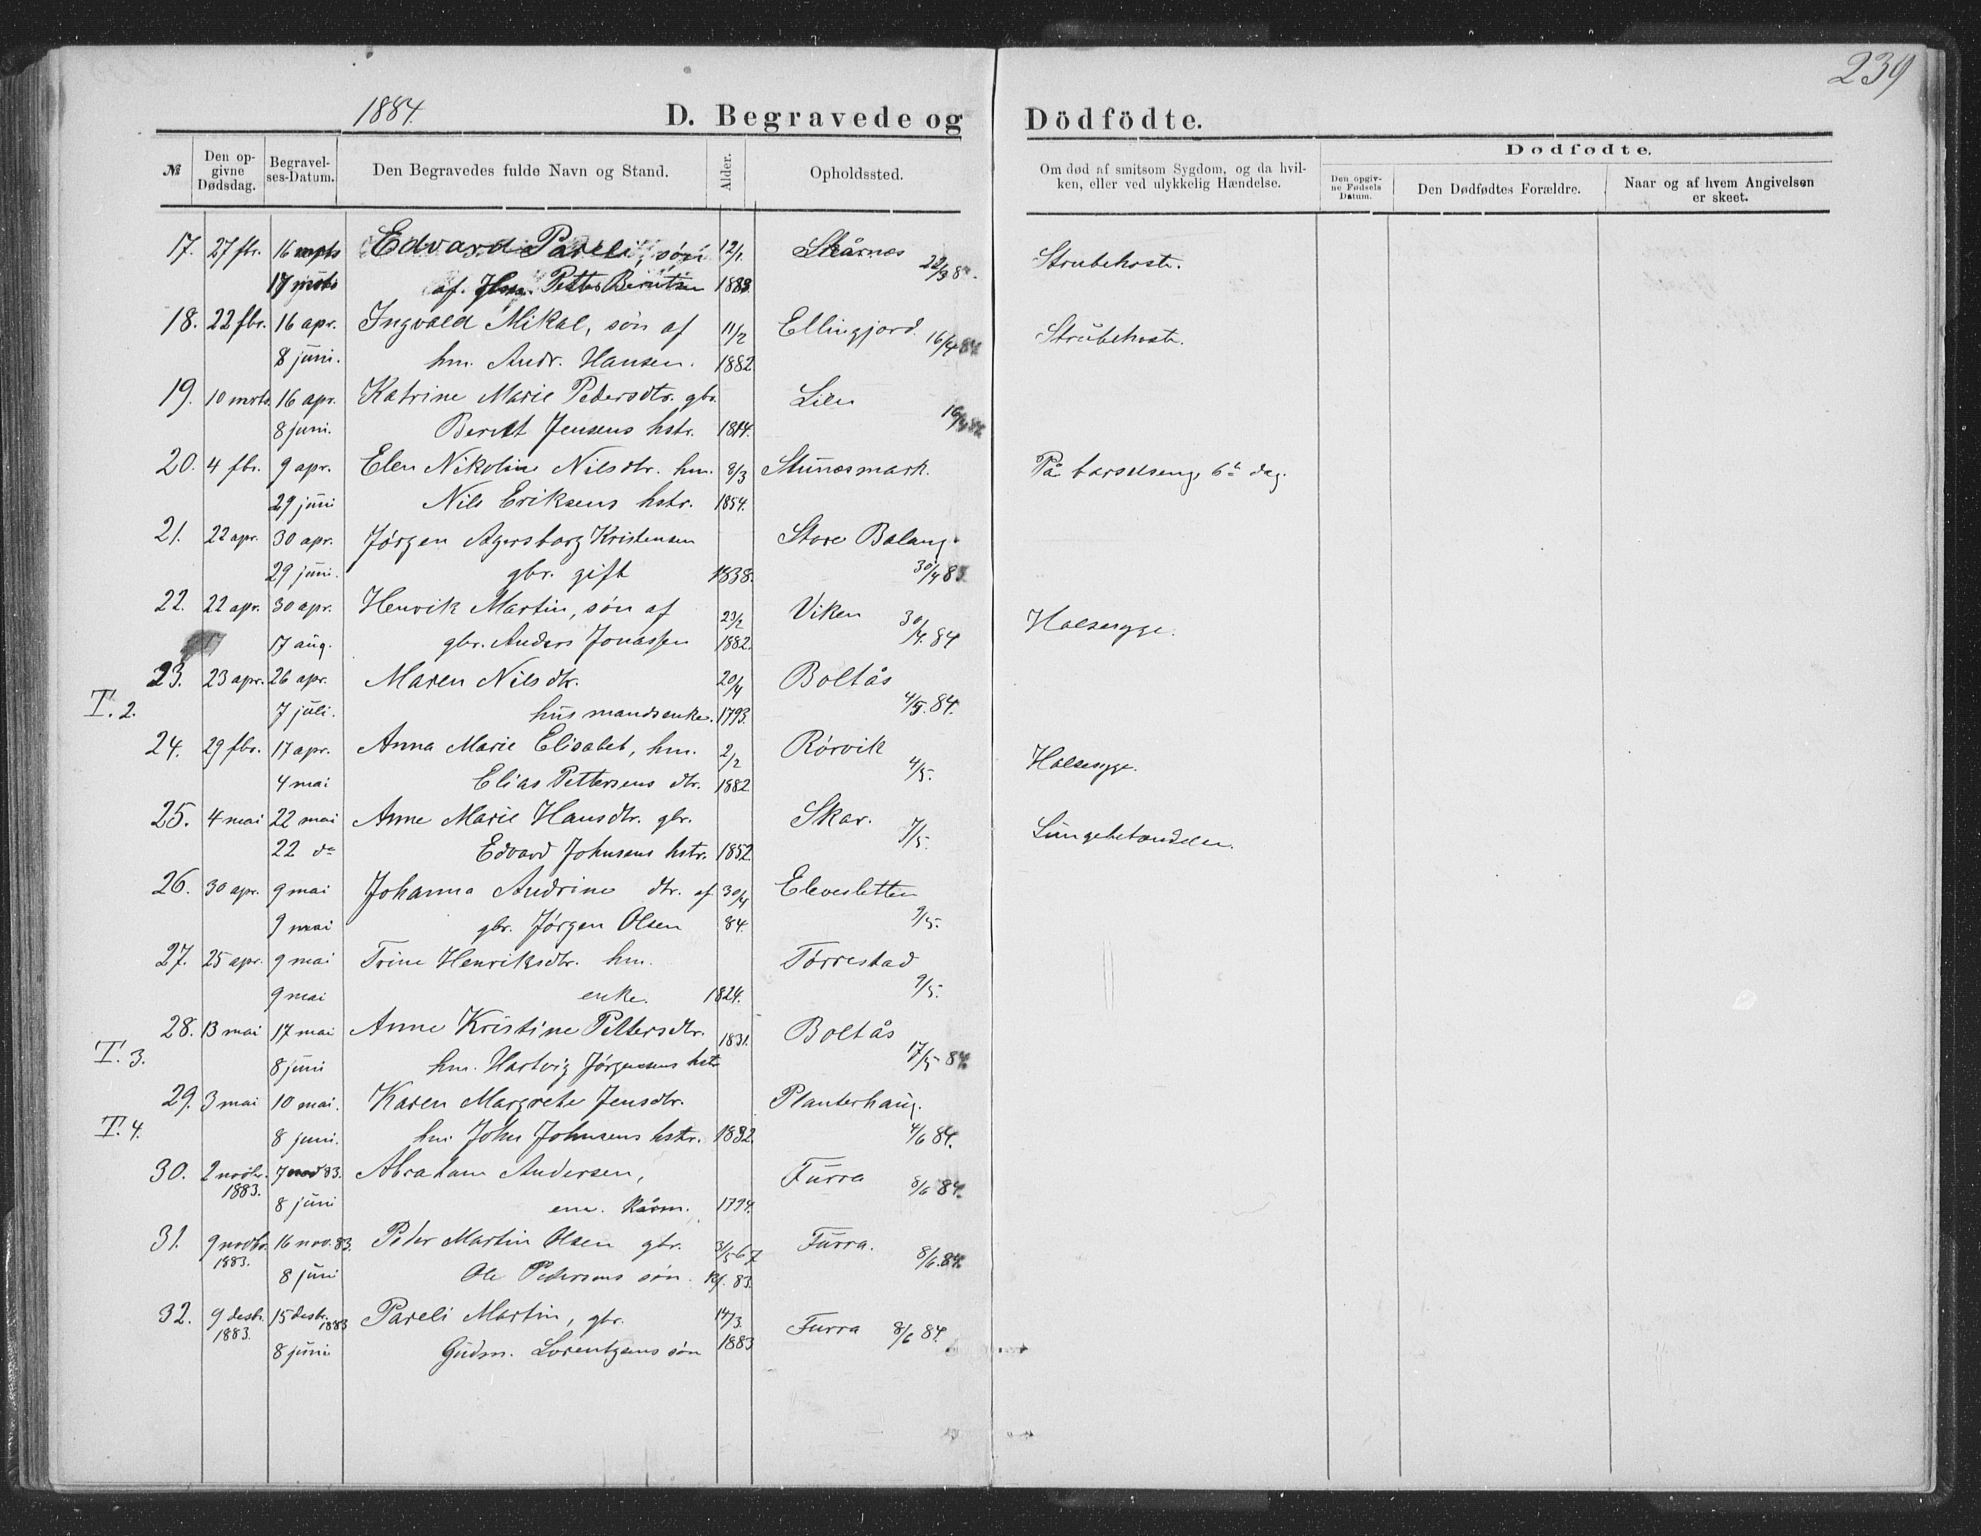 239
1884.
D. Begravede og Dödfödte.
№ Den opgivne Dødsdag. Begravelses-Datum. Den Begravedes fulde Navn og Stand. Alder. Opholdssted. Om død af smitsom Sygdom, og da hvilken, eller ved ulykkelig Hændelse. Dødfødte.
Den opgivne Fødsels Datum. Den Dødfødtes Forældre. Naar og af hvem Angivelsen er skeet.
17. 27 fbr. 16 mrts Edvard Pareli, søn 12/1. Skårnæs 22/3 8 Strubehoste.
17 mrts af Petter Berntsen 1883
18. 22 fbr. 16 apr. Ingvald Mikal, søn af 11/2 Ellingjord. 16/4 84 Strubehoste.
8 juni. hm. Andr. Hansen. 1882.
19. 10 mrts. 16 apr. Katrine Marie Pedersdtr. gbr. Lilu 16/4 84
8 juni. Berent Jensens hstr. 1814.
20. 4 fbr. 9 apr. Elen Nikoline Nilsdtr. hm. 8/3 Stunæsmark. På barselseng, 6te dag.
29 juni Nils Eriksens hstr. 1854.
21. 22 apr. 30 apr. Jørgen Agersborg Kristensen Store Balang.
29 juni. gbr. gift 1838. 30/4 8
22. 22 apr. 30 apr. Henrik Martin, søn af 23/2 Viken 30/4. 84 Halssyge.
17 aug. gbr. Anders Jonassen 1882.
23. 23 apr. 26 apr. Maren Nilsdtr. 20/4 Boltås
T. 2. 7 juli. husmandsenke. 1793. 4/5. 84.
24. 29 fbr. 17 apr. Anna Marie Elisabet, hm. 2/2 Rörvik 4/5. Halssyge.
4 mai Elias Pettersens dtr. 1882
25. 4 mai 22 mai Anne Marie Hansdtr. gbr. Skar. 7/5. Lungebetændelse.
22 do Edvard Johnsens hstr. 1852
26. 30 apr. 9 mai Johanna Andrine dtr. af 30/4 Elvesletten
9 mai gbr. Jørgen Olsen 84. 9/5.
27. 25 apr. 9 mai Trine Henriksdtr. hm. Torrestad
9 mai enke. 1824. 9/5.
28. 13 mai 17 mai Anne Kristine Pettersdtr. 1831. Boltås
T. 3. 8 juni hm. Hartvig Jørgensens hstr 17/5 84
29. 3 mai 10 mai. Karen Margrete Jensdtr. Planterhaug.
T. 4. 8 juni. hm. John Johnsens hstr. 1832. 4/6 84.
30. 2 novbr. 1883. 7 83. Abraham Andersen, Furra 8/6 84.
8 juni em. kårm. 1794.
31. 9 novbr. 1883. 16 nov. 83. Peder Martin Olsen gbr. 3/5 67 Furra. 8/6. 84.
8 juni Ole Pedersens søn. 83.
32. 9 desbr. 1883. 15 desbr. 1883 Pareli Martin, gbr. 14/3. Furra 8/6 84.
8 juni Gudm. Lorentzens søn 1883